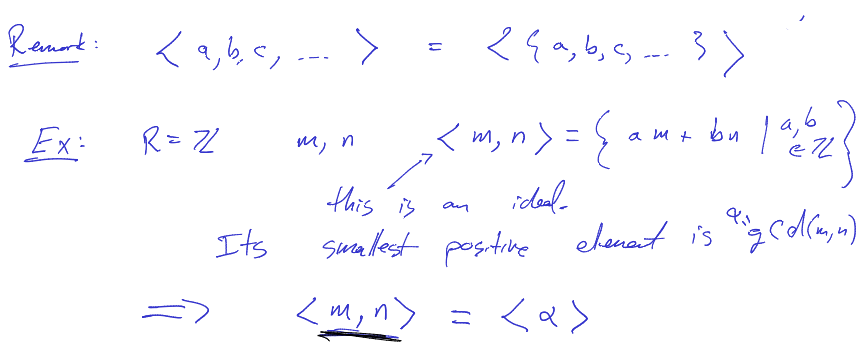 Remark: < a, b, c, ... > = < { a, b, c, ... } >
Ex: R = ℤ m, n < m, n > = { am + bn | a, b ∈ ℤ }
this is an ideal.
Its smallest positive element is α := gcd(m, n)
⟹ < m, n > = < α >